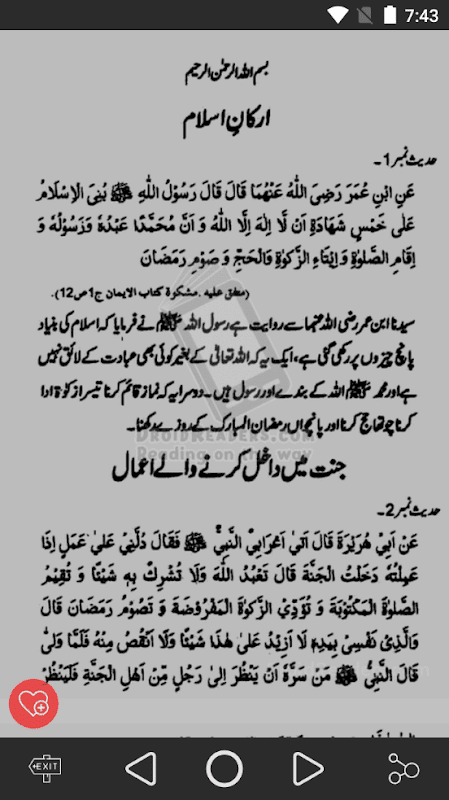 7:43
بسم الله الرحمن الرحيم
ارکانِ اسلام
حدیث نمبر 1۔
عَنِ ابْنِ عُمَرَ رَضِىَ اللّٰهُ عَنْهُمَا قَالَ قَالَ رَسُوْلُ اللّٰهِ ﷺ بُنِىَ الْاِسْلَامُ
عَلٰى خَمْسٍ شَهَادَةِ اَنْ لَّا اِلٰهَ اِلَّا اللّٰهُ وَ اَنَّ مُحَمَّدًا عَبْدُهٗ وَرَسُوْلُهٗ وَ
اِقَامِ الصَّلٰوةِ وَ اِيْتَاءِ الزَّكٰوةِ وَالْحَجِّ وَ صَوْمِ رَمَضَانَ
(متفق علیہ ۔مشکوٰۃ کتاب الایمان ج1ص12)۔
سیدنا ابن عمر رضی اللہ عنہما سے روایت ہے رسول اللہ ﷺ نے فرمایا کہ اسلام کی بنیاد
پانچ چیزوں پر رکھی گئی ہے، ایک یہ کہ اللہ تعالیٰ کے بغیر کوئی بھی عبادت کے لائق نہیں
ہے اور محمد ﷺ اللہ کے بندے اور رسول ہیں۔ دوسرا یہ کہ نماز قائم کرنا تیسرا زکوٰۃ ادا
کرنا چوتھا حج کرنا اور پانچواں رمضان المبارک کے روزے رکھنا۔
DROIDREADERS.COM
Reading on the way
جنت میں داخل کرنے والے اعمال
حدیث نمبر 2۔
عَنْ اَبِىْ هُرَيْرَةَ قَالَ اَتٰى اَعْرَابِىٌّ النَّبِىَّ ﷺ فَقَالَ دُلَّنِىْ عَلٰى عَمَلٍ اِذَا
عَمِلْتُهٗ دَخَلْتُ الْجَنَّةَ قَالَ تَعْبُدُ اللّٰهَ وَلَا تُشْرِكُ بِهٖ شَيْئًا وَ تُقِيْمُ
الصَّلٰوةَ الْمَكْتُوْبَةَ وَ تُؤَدِّى الزَّكٰوةَ الْمَفْرُوْضَةَ وَ تَصُوْمُ رَمَضَانَ قَالَ
وَالَّذِىْ نَفْسِىْ بِيَدِهٖ لَا اَزِيْدُ عَلٰى هٰذَا شَيْئًا وَلَا اَنْقُصُ مِنْهُ فَلَمَّا وَلّٰى
قَالَ النَّبِىُّ ﷺ مَنْ سَرَّهٗ اَنْ يَّنْظُرَ اِلٰى رَجُلٍ مِّنْ اَهْلِ الْجَنَّةِ فَلْيَنْظُرْ
EXIT